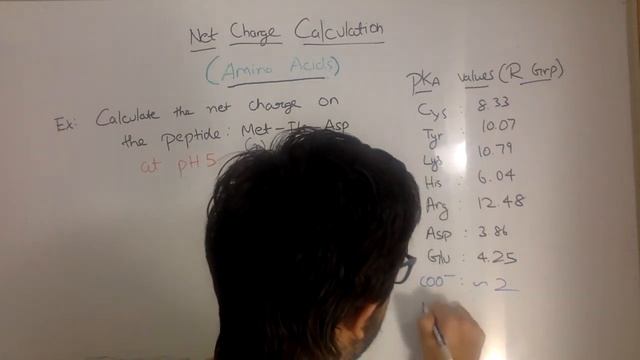 Net Charge Calculation
(Amino Acids)
Ex: Calculate the net charge on
the peptide: Met-Ile-Asp
at pH 5
PKA values (R Grp)
Cys : 8.33
Tyr : 10.07
Lys : 10.79
His : 6.04
Arg : 12.48
Asp : 3.86
Glu : 4.25
COO⁻ : ~ 2